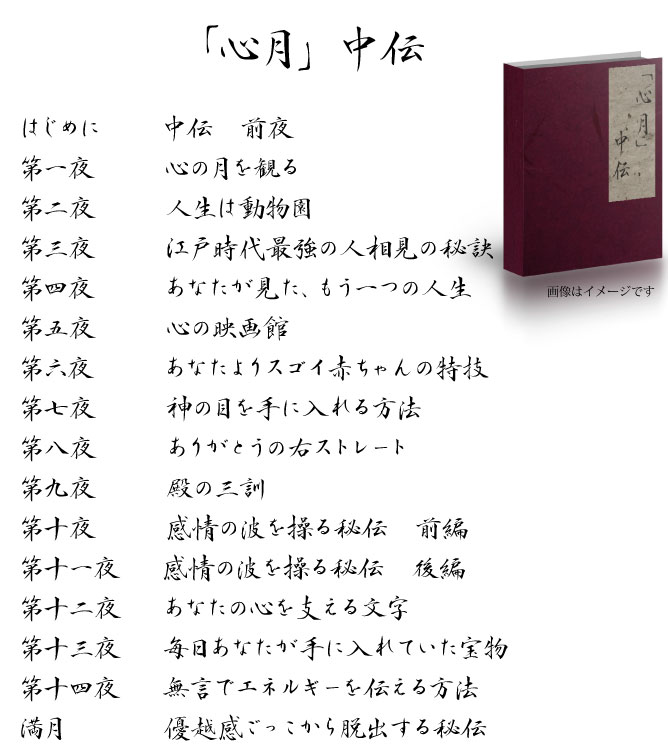 「心月」 中伝
はじめに 中伝 前夜
第一夜 心の月を観る
第二夜 人生は動物園
第三夜 江戸時代最強の人相見の秘訣
第四夜 あなたが見た、もう一つの人生
第五夜 心の映画館
第六夜 あなたよりスゴイ赤ちゃんの特技
第七夜 神の目を手に入れる方法
第八夜 ありがとうの右ストレート
第九夜 殿の三訓
第十夜 感情の波を操る秘伝 前編
第十一夜 感情の波を操る秘伝 後編
第十二夜 あなたの心を支える文字
第十三夜 毎日あなたが手に入れていた宝物
第十四夜 無言でエネルギーを伝える方法
満月 優越感ごっこから脱出する秘伝
「心月」
中伝
画像はイメージです